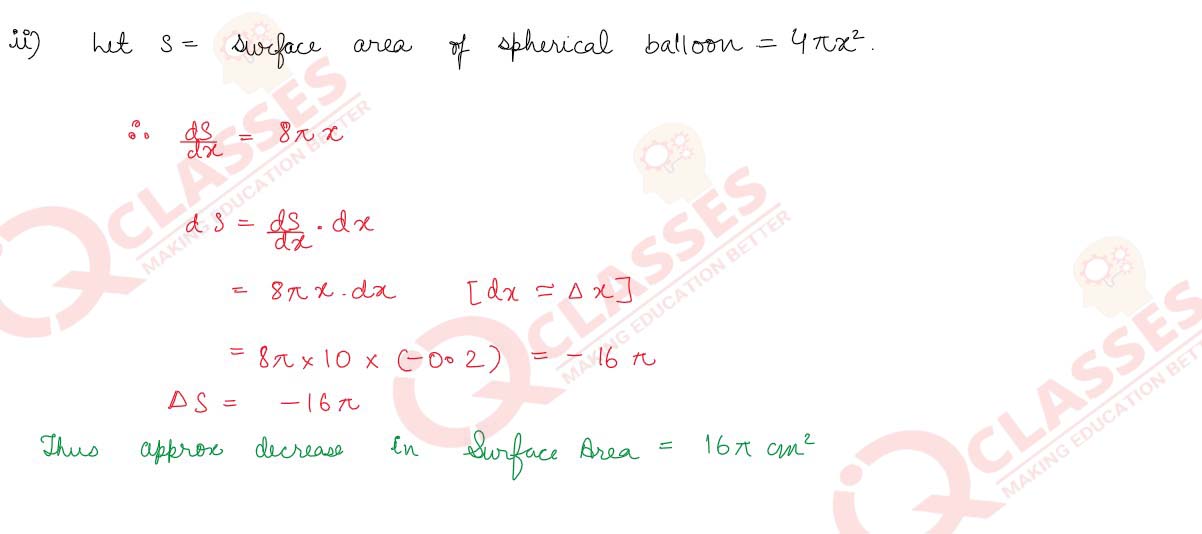 ii) Let S = surface area of spherical balloon = 4πx².
∴ dS/dx = 8πx
dS = dS/dx · dx
= 8πx·dx [dx ≃ Δx]
= 8π × 10 × (-0.2) = -16π
ΔS = -16π
Thus approx decrease in Surface Area = 16π cm²
QCLASSES
MAKING EDUCATION BETTER
QCLASSES
MAKING EDUCATION BETTER
iQCLASSES
MAKING EDUCATION BETTER